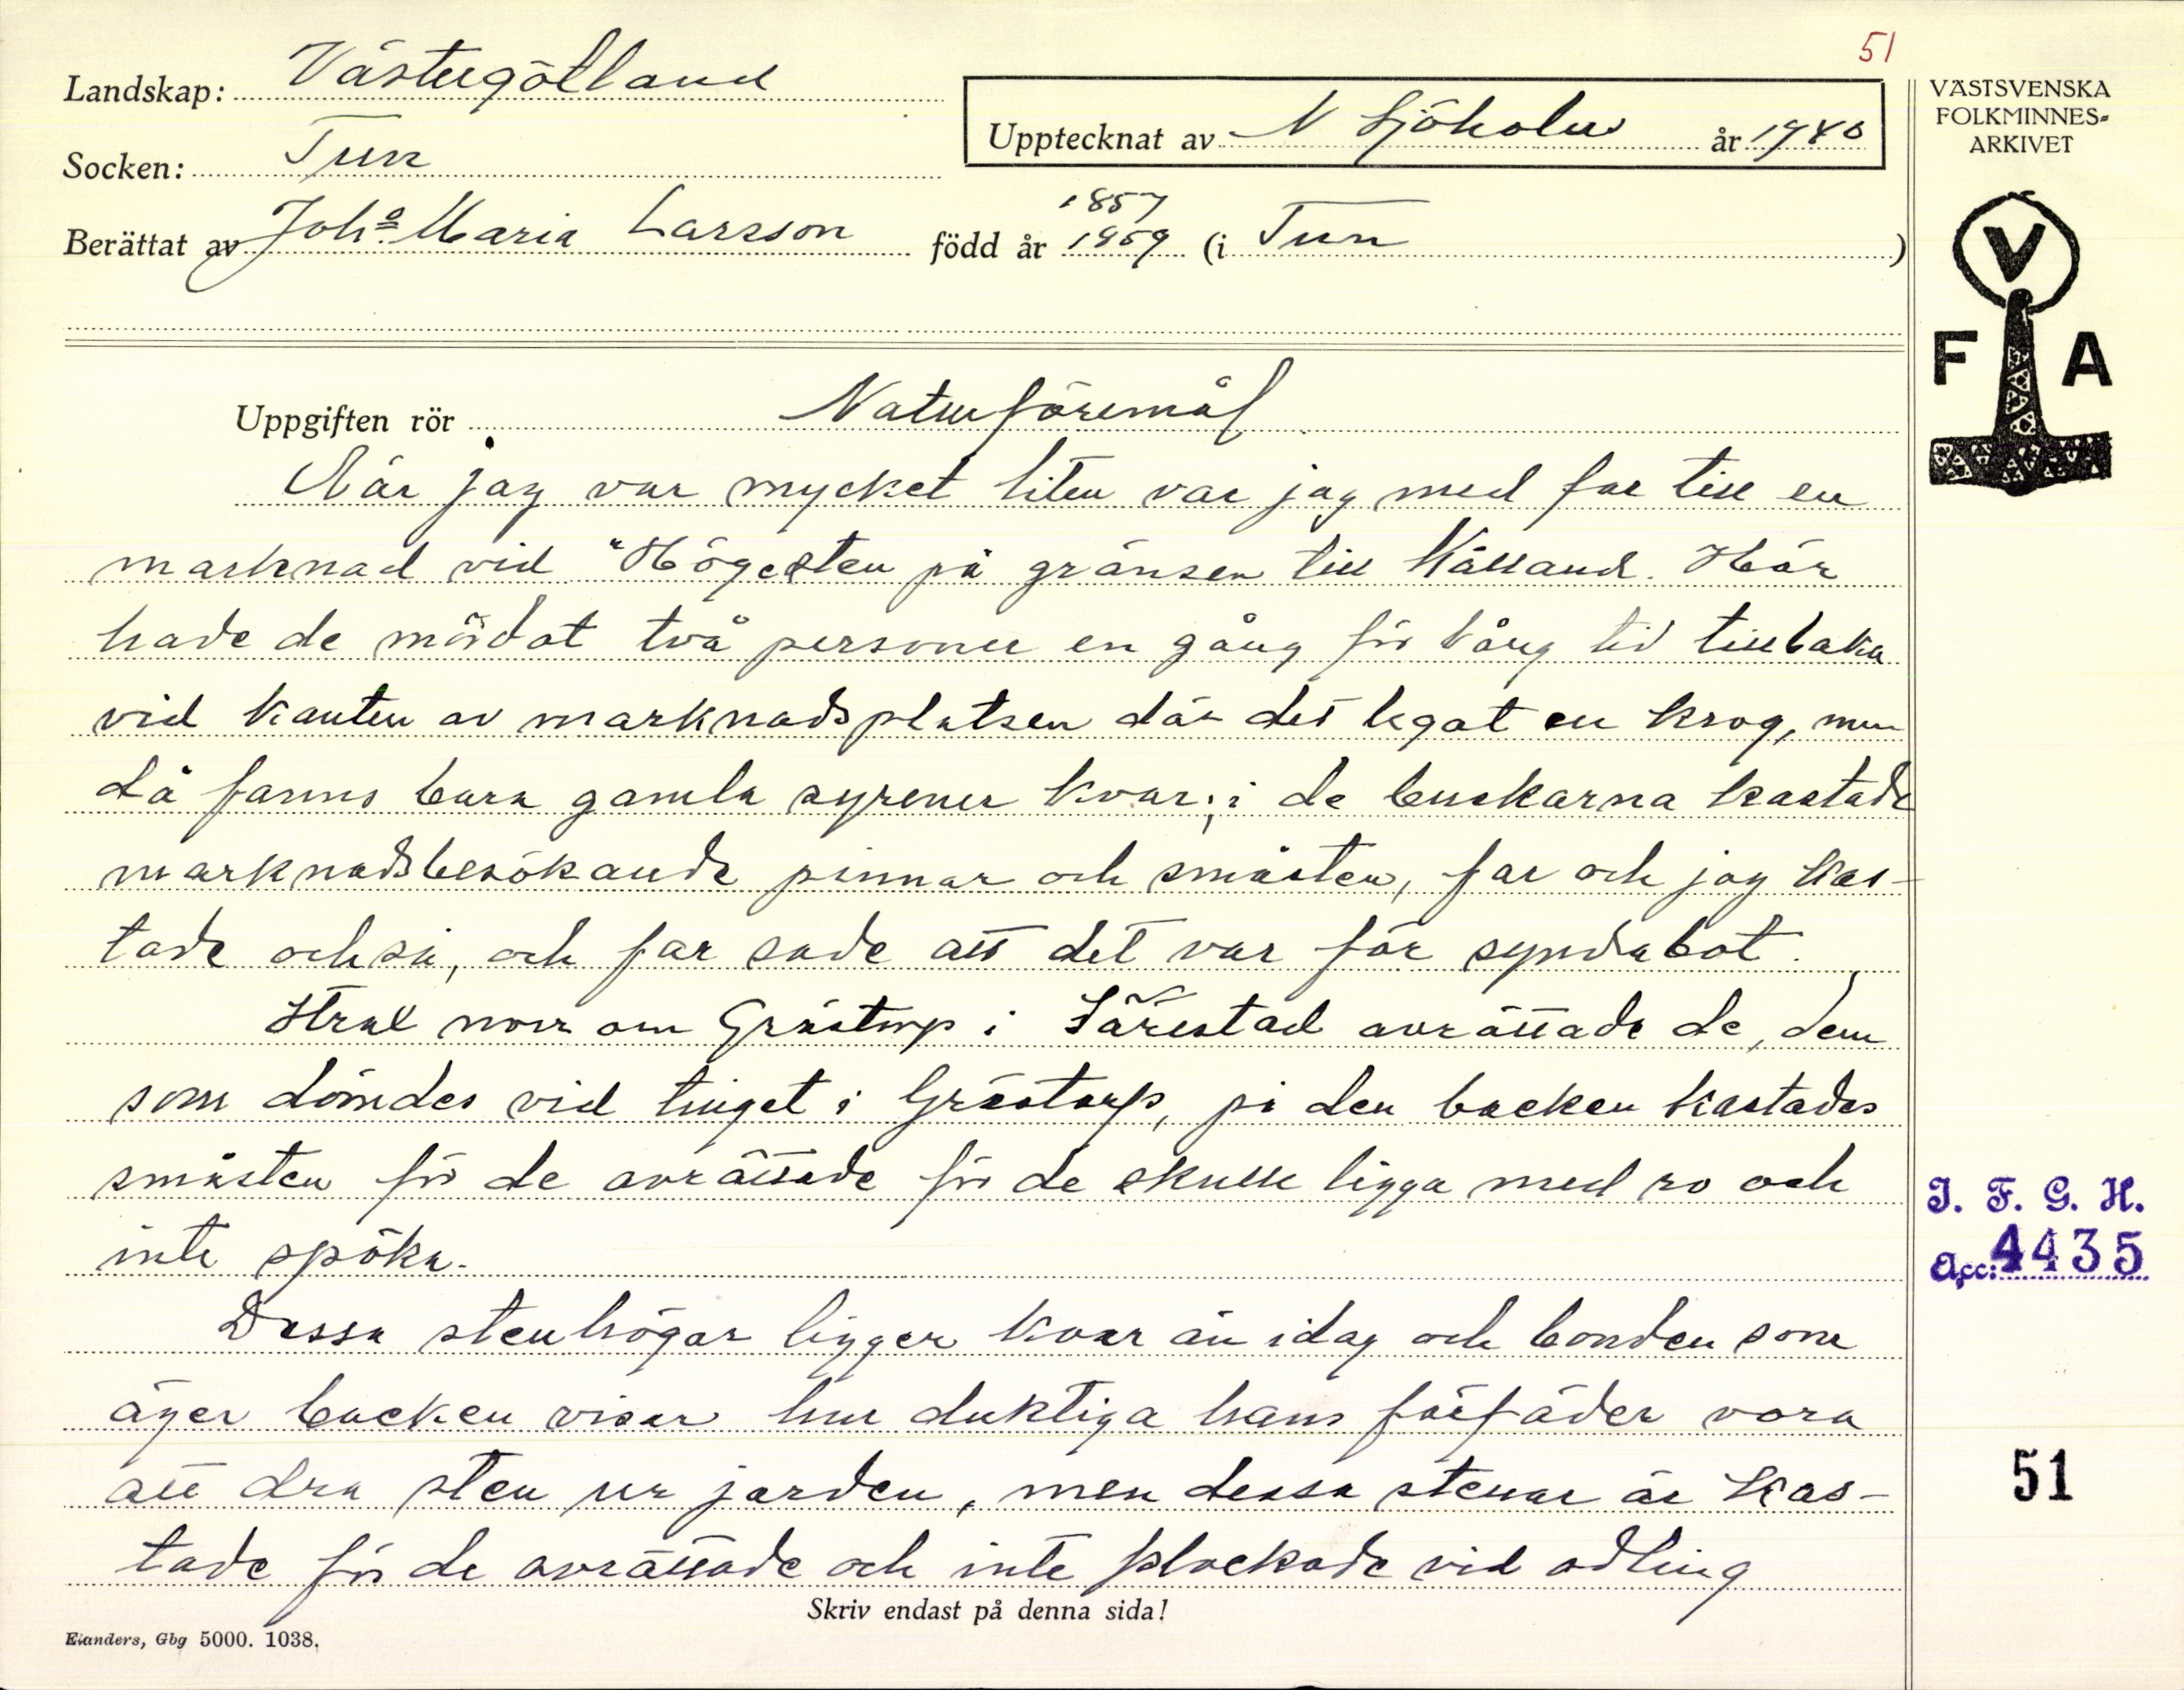 51
Landskap: Västergötland
Upptecknat av N Sjöholm år 1940
Socken: Tun
Berättat av Joh:a Maria Larsson född år 1857 1859 (i Tun )
Uppgiften rör Naturföremål
När jag var mycket liten var jag med far till en
marknad vid "Högesten på gränsen till Kålland. Här
hade de mördat två personer en gång för lång tid tillbaka
vid kanten av marknadsplatsen där det legat en krog, men
då fanns bara gamla syrener kvar; i de buskarna kastade
marknadsbesökande pinnar och småsten, far och jag kas-
tade också, och far sade att det var för syndabot.
Strax norr om Grästorp i Särestad avrättade de, dem
som dömdes vid tinget i Grästorp, på den backen kastades
småsten för de avrättade för de skulle ligga med ro och
inte spöka.
Dessa stenhögar ligger kvar än idag och bonden som
äger backen visar hur duktiga hans förfäder vora
att dra sten ur jorden, men dessa stenar är kas-
tade för de avrättade och inte plockade vid odling
Skriv endast på denna sida!
Elanders, Gbg 5000. 1038.
VÄSTSVENSKA
FOLKMINNES-
ARKIVET
V
F A
I. F. G. H.
Acc: 4435
51